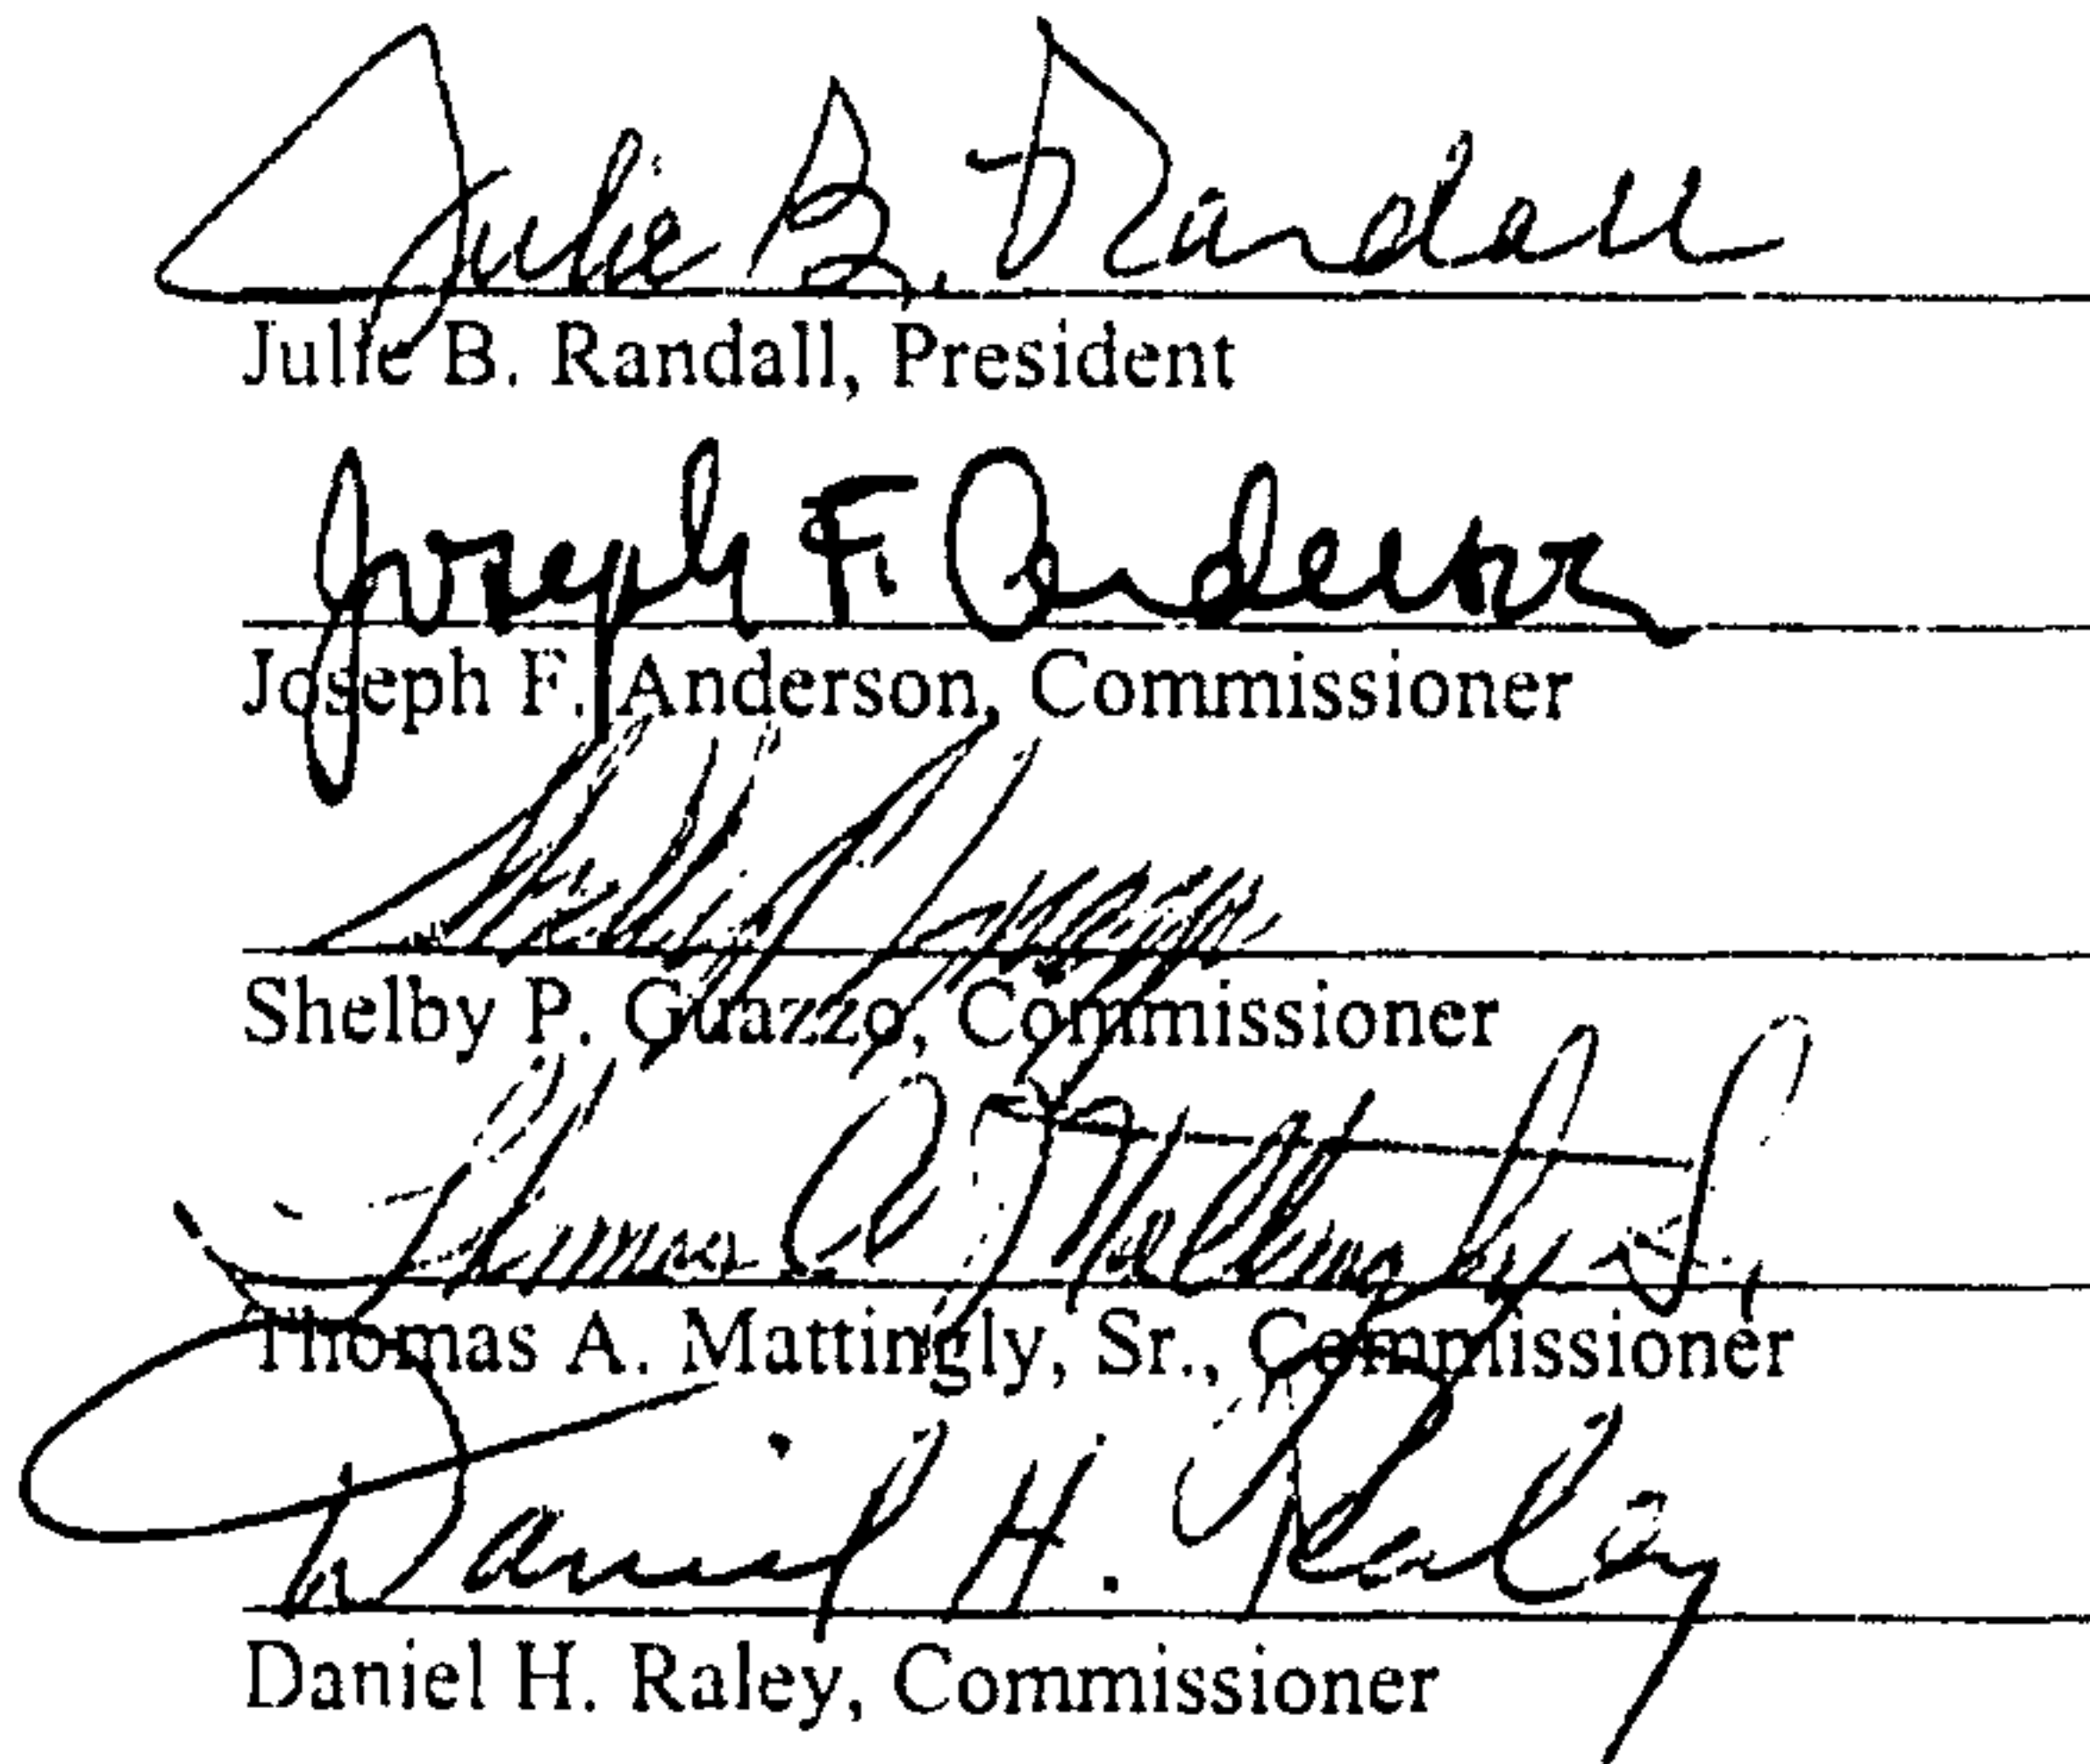 Julie B. Randall
Julie B. Randall, President
Joseph F. Anderson
Joseph F. Anderson, Commissioner
Shelby P. Guazzo
Shelby P. Guazzo, Commissioner
Thomas A. Mattingly Sr.
Thomas A. Mattingly, Sr., Commissioner
Daniel H. Raley
Daniel H. Raley, Commissioner